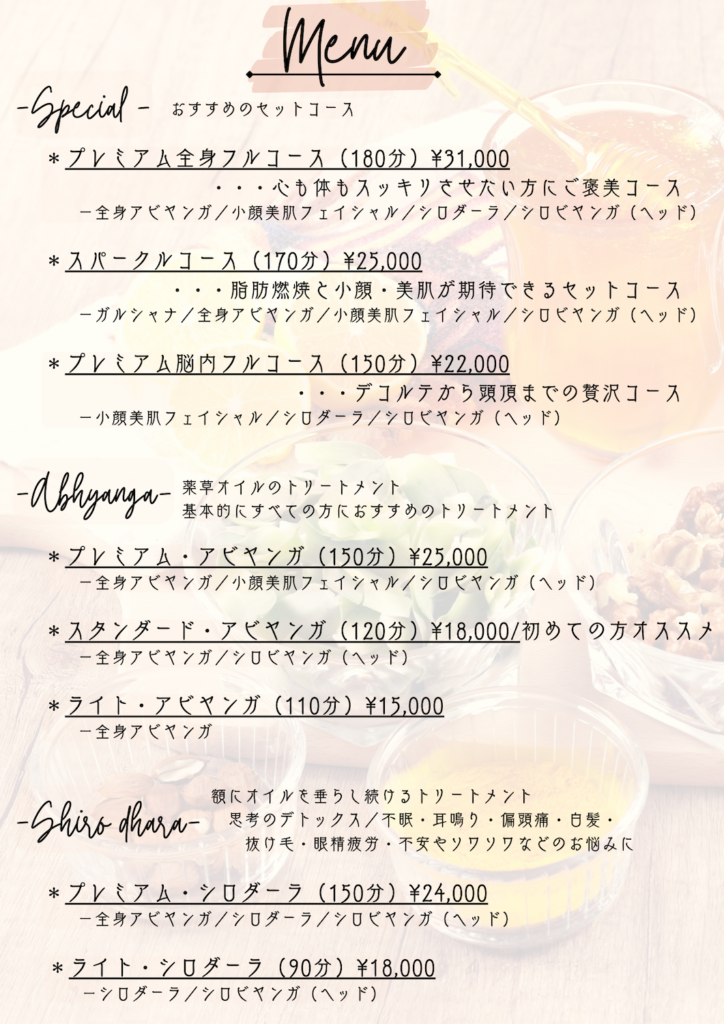 Menu
-Special- おすすめのセットコース
*プレミアム全身フルコース（180分）¥31,000
・・・心も体もスッキリさせたい方にご褒美コース
－全身アビヤンガ／小顔美肌フェイシャル／シロダーラ／シロビヤンガ（ヘッド）
*スパークルコース（170分）¥25,000
・・・脂肪燃焼と小顔・美肌が期待できるセットコース
－ガルシャナ／全身アビヤンガ／小顔美肌フェイシャル／シロビヤンガ（ヘッド）
*プレミアム脳内フルコース（150分）¥22,000
・・・デコルテから頭頂までの贅沢コース
－小顔美肌フェイシャル／シロダーラ／シロビヤンガ（ヘッド）
-Abhyanga- 薬草オイルのトリートメント
基本的にすべての方におすすめのトリートメント
*プレミアム・アビヤンガ（150分）¥25,000
－全身アビヤンガ／小顔美肌フェイシャル／シロビヤンガ（ヘッド）
*スタンダード・アビヤンガ（120分）¥18,000/初めての方オススメ
－全身アビヤンガ／シロビヤンガ（ヘッド）
*ライト・アビヤンガ（110分）¥15,000
－全身アビヤンガ
額にオイルを垂らし続けるトリートメント
-Shiro dhara- 思考のデトックス／不眠・耳鳴り・偏頭痛・白髪・
抜け毛・眼精疲労・不安やソワソワなどのお悩みに
*プレミアム・シロダーラ（150分）¥24,000
－全身アビヤンガ／シロダーラ／シロビヤンガ（ヘッド）
*ライト・シロダーラ（90分）¥18,000
－シロダーラ／シロビヤンガ（ヘッド）